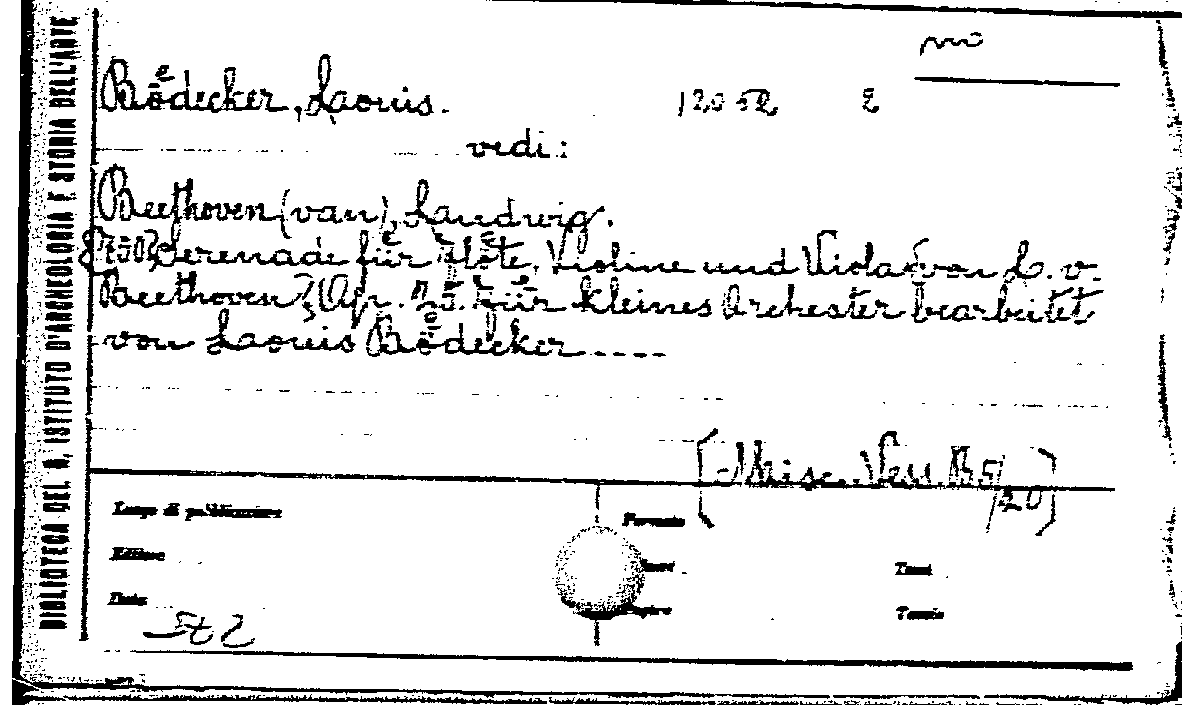 BIBLIOTECA DEL R. ISTITUTO D'ARCHEOLOGIA E STORIA DELL'ARTE
mo
Bödecker, Laouis. 12052 2
vedi:
Beethoven (van), Laudwig.
Serenade für Flöte, Violine und Viola von L. v.
Beethoven Op. 25. Für kleines Orchester bearbeitet
von Laouis Bödecker.....
[Misc. Vess. B5/20]
Luogo di pubblicazione Formato
Editore
Data Tomi
Tavole